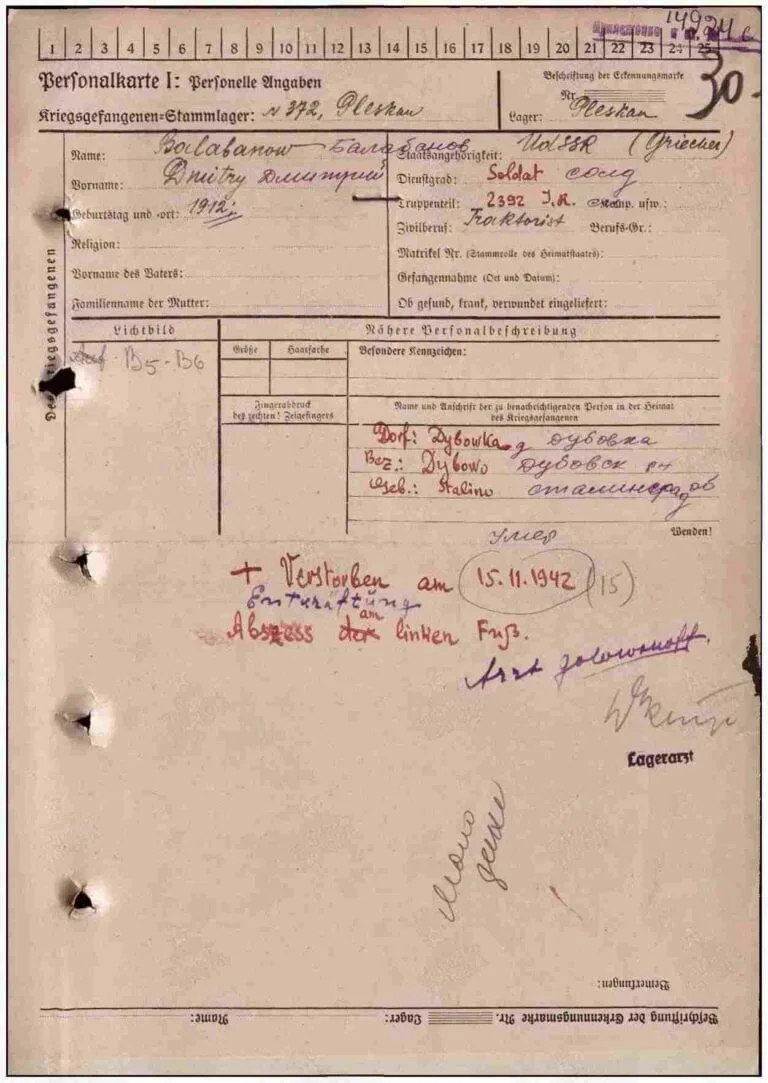 14924 с
1 2 3 4 5 6 7 8 9 10 11 12 13 14 15 16 17 18 19 20 21 22 23 24 25
30.
Personalkarte I: Personelle Angaben
Beschriftung der Erkennungsmarke
Nr.
Kriegsgefangenen-Stammlager: N 372, Pleskau
Lager: Pleskau
Des Kriegsgefangenen
Name: Balabanow Балабанов
Vorname: Dmitry Дмитрий
Geburtstag und -ort: 1912
Religion:
Vorname des Vaters:
Familienname der Mutter:
Staatsangehörigkeit: UdSSR (Grieche)
Dienstgrad: Soldat солд
Truppenteil: 2392 J.R. Komp. usw.:
Zivilberuf: Traktorist Berufs-Gr.:
Matrikel Nr. (Stammrolle des Heimatstaates):
Gefangennahme (Ort und Datum):
Ob gesund, krank, verwundet eingeliefert:
Lichtbild
B5-B6
Nähere Personalbeschreibung
Größe Haarfarbe Besondere Kennzeichen:
Fingerabdruck
des rechten! Zeigefingers
Name und Anschrift der zu benachrichtigenden Person in der Heimat
des Kriegsgefangenen
Dorf: Dybowka д Дубовка
Bez.: Dybowo Дубовск рн
Geb.: Stalino Сталинград об
Wenden!
умер
+ Verstorben am 15.11.1942 (15)
Entkräftung
Abszess der am linken Fuß.
Arzt
Lagerarzt
Bemerkungen:
Beschriftung der Erkennungsmarke Nr. Lager: Name: